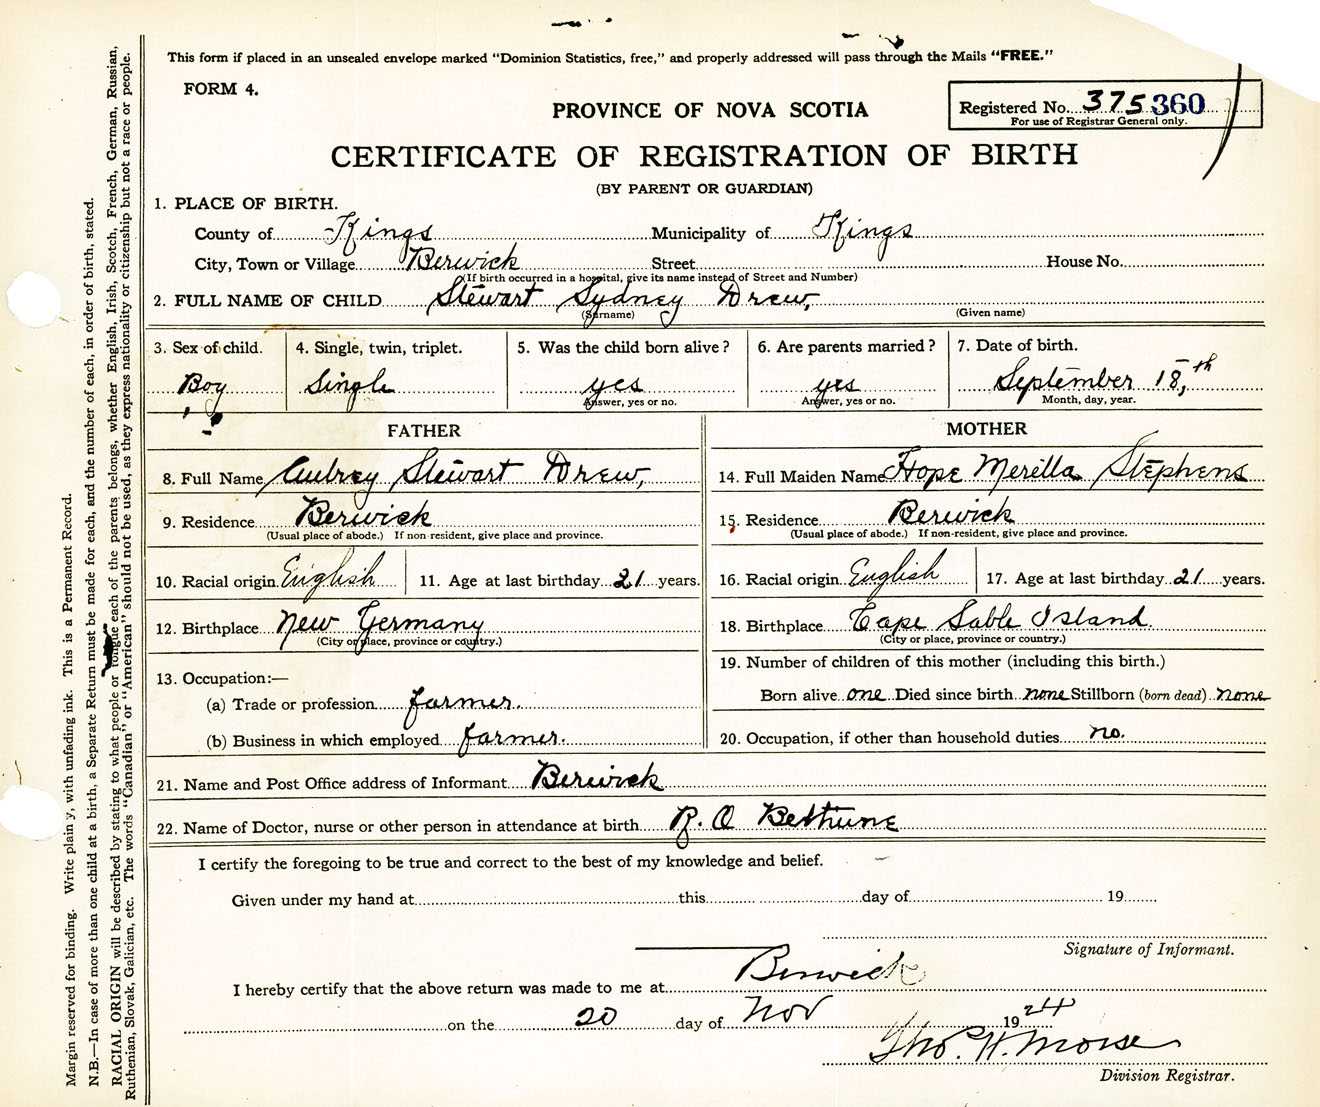 This form if placed in an unsealed envelope marked "Dominion Statistics, free," and properly addressed will pass through the Mails "FREE."
FORM 4.
PROVINCE OF NOVA SCOTIA
Registered No. 375 360
For use of Registrar General only.
CERTIFICATE OF REGISTRATION OF BIRTH
(BY PARENT OR GUARDIAN)
1. PLACE OF BIRTH.
County of Kings Municipality of Kings
City, Town or Village Berwick Street House No.
(If birth occurred in a hospital, give its name instead of Street and Number)
2. FULL NAME OF CHILD Stewart Sydney Drew,
(Surname) (Given name)
3. Sex of child. 4. Single, twin, triplet. 5. Was the child born alive? 6. Are parents married? 7. Date of birth.
Boy Single yes yes September 18,th
Answer, yes or no. Answer, yes or no. Month, day, year.
FATHER
8. Full Name Aubrey Stewart Drew,
9. Residence Berwick
(Usual place of abode.) If non-resident, give place and province.
10. Racial origin English 11. Age at last birthday 21 years.
12. Birthplace New Germany
(City or place, province or country.)
13. Occupation:—
(a) Trade or profession farmer.
(b) Business in which employed farmer.
MOTHER
14. Full Maiden Name Hope Merilla Stephens
15. Residence Berwick
(Usual place of abode.) If non-resident, give place and province.
16. Racial origin English 17. Age at last birthday 21 years.
18. Birthplace Cape Sable Island.
(City or place, province or country.)
19. Number of children of this mother (including this birth.)
Born alive one Died since birth none Stillborn (born dead) none
20. Occupation, if other than household duties no.
21. Name and Post Office address of Informant Berwick
22. Name of Doctor, nurse or other person in attendance at birth R. O Bethune
I certify the foregoing to be true and correct to the best of my knowledge and belief.
Given under my hand at this day of 19
Signature of Informant.
I hereby certify that the above return was made to me at Berwick
on the 20 day of Nov 1924
Tho. H. Morse
Division Registrar.
Margin reserved for binding. Write plain y, with unfading ink. This is a Permanent Record.
N.B.—In case of more than one child at a birth, a Separate Return must be made for each, and the number of each, in order of birth, stated.
RACIAL ORIGIN will be described by stating to what people or tongue each of the parents belongs, whether English, Irish, Scotch, French, German, Russian,
Ruthenian, Slovak, Galician, etc. The words "Canadian" or "American" should not be used, as they express nationality or citizenship but not a race or people.